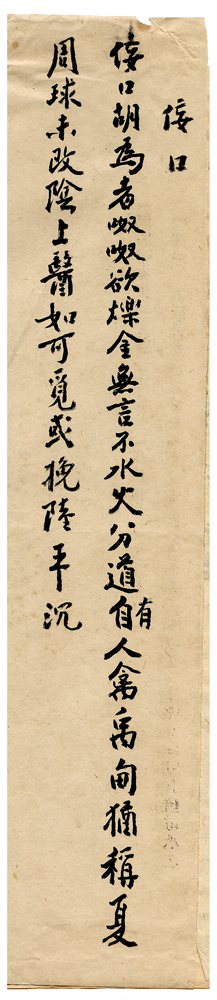 侫口
侫口胡為者呶呶欲爍金無言不水火分道自有人禽禹甸猶稱夏
周球未改陰上醫如可覓或挽陸平沉